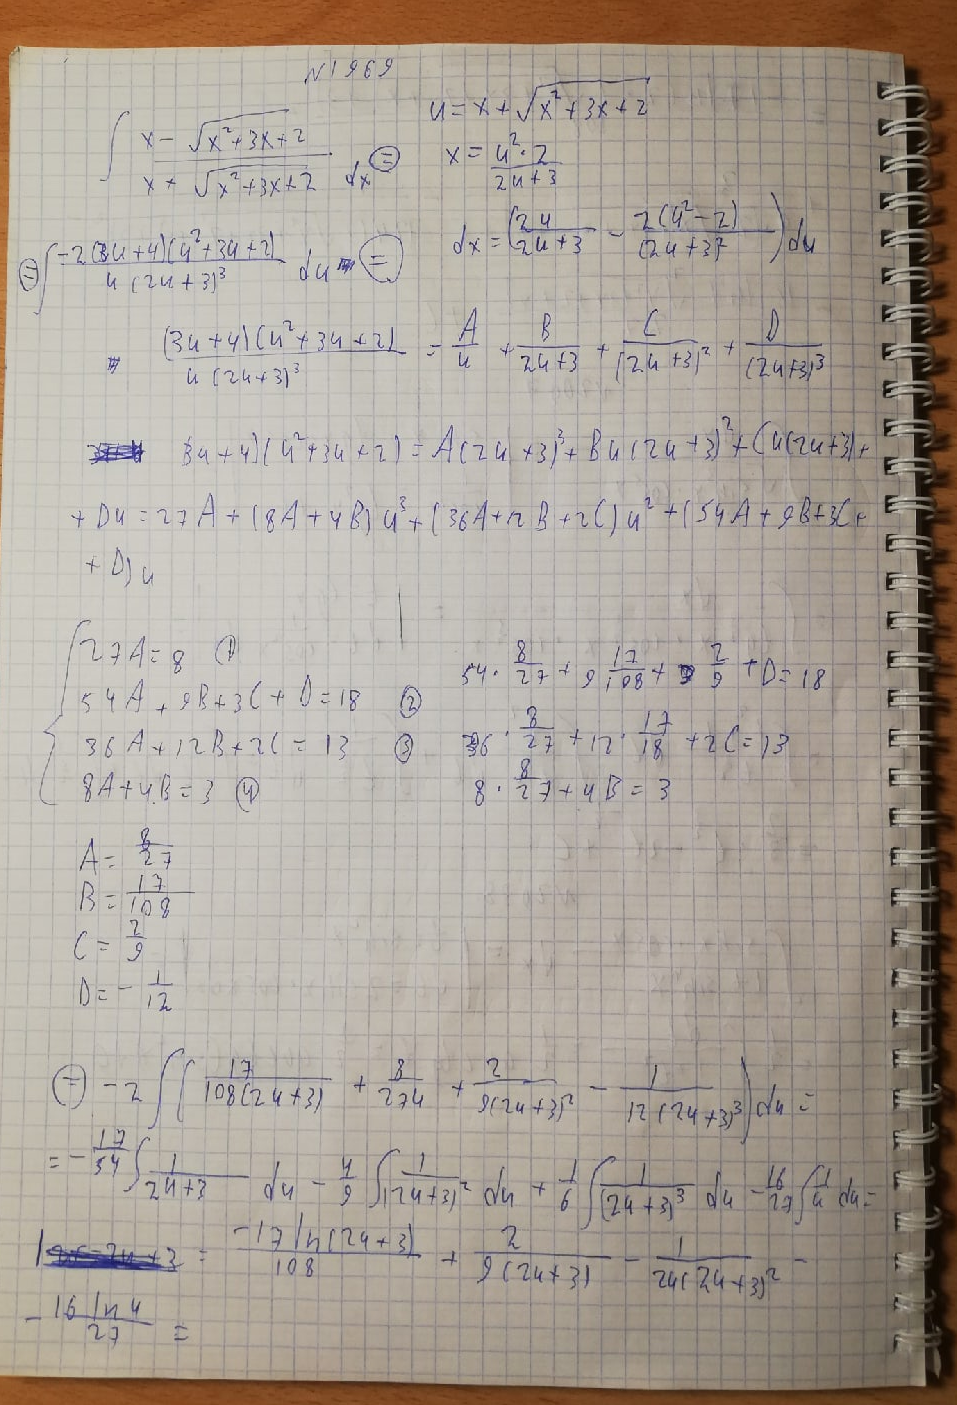 N1969
∫ (x - √(x²+3x+2))/(x + √(x²+3x+2)) dx =
u = x + √(x²+3x+2)
x = (u²·2)/(2u+3)
dx = (2u/(2u+3) - 2(u²-2)/(2u+3)²) du
= ∫ (-2(3u+4)(u²+3u+2))/(u(2u+3)³) du =
((3u+4)(u²+3u+2))/(u(2u+3)³) = A/u + B/(2u+3) + C/(2u+3)² + D/(2u+3)³
3u+4)(u²+3u+2) = A(2u+3)³ + Bu(2u+3)² + Cu(2u+3) +
+ Du = 27A + (8A+4B)u³ + (36A+12B+2C)u² + (54A+9B+3C+
+ D)u
27A = 8 (1)
54A + 9B + 3C + D = 18 (2)
36A + 12B + 2C = 13 (3)
8A + 4B = 3 (4)
54 · 8/27 + 9 17/108 + 3 2/9 + D = 18
36 · 8/27 + 12 · 17/18 + 2C = 13
8 · 8/27 + 4B = 3
A = 8/27
B = 17/108
C = 2/9
D = - 1/12
= -2 ∫ (17/(108(2u+3)) + 8/(27u) + 2/(9(2u+3)²) - 1/(12(2u+3)³)) du =
= - 17/54 ∫ 1/(2u+3) du - 4/9 ∫ 1/(2u+3)² du + 1/6 ∫ 1/(2u+3)³ du - 16/27 ∫ 1/u du =
= (-17 ln(2u+3))/108 + 2/(9(2u+3)) - 1/(24(2u+3)²) -
- (16 ln u)/27 =